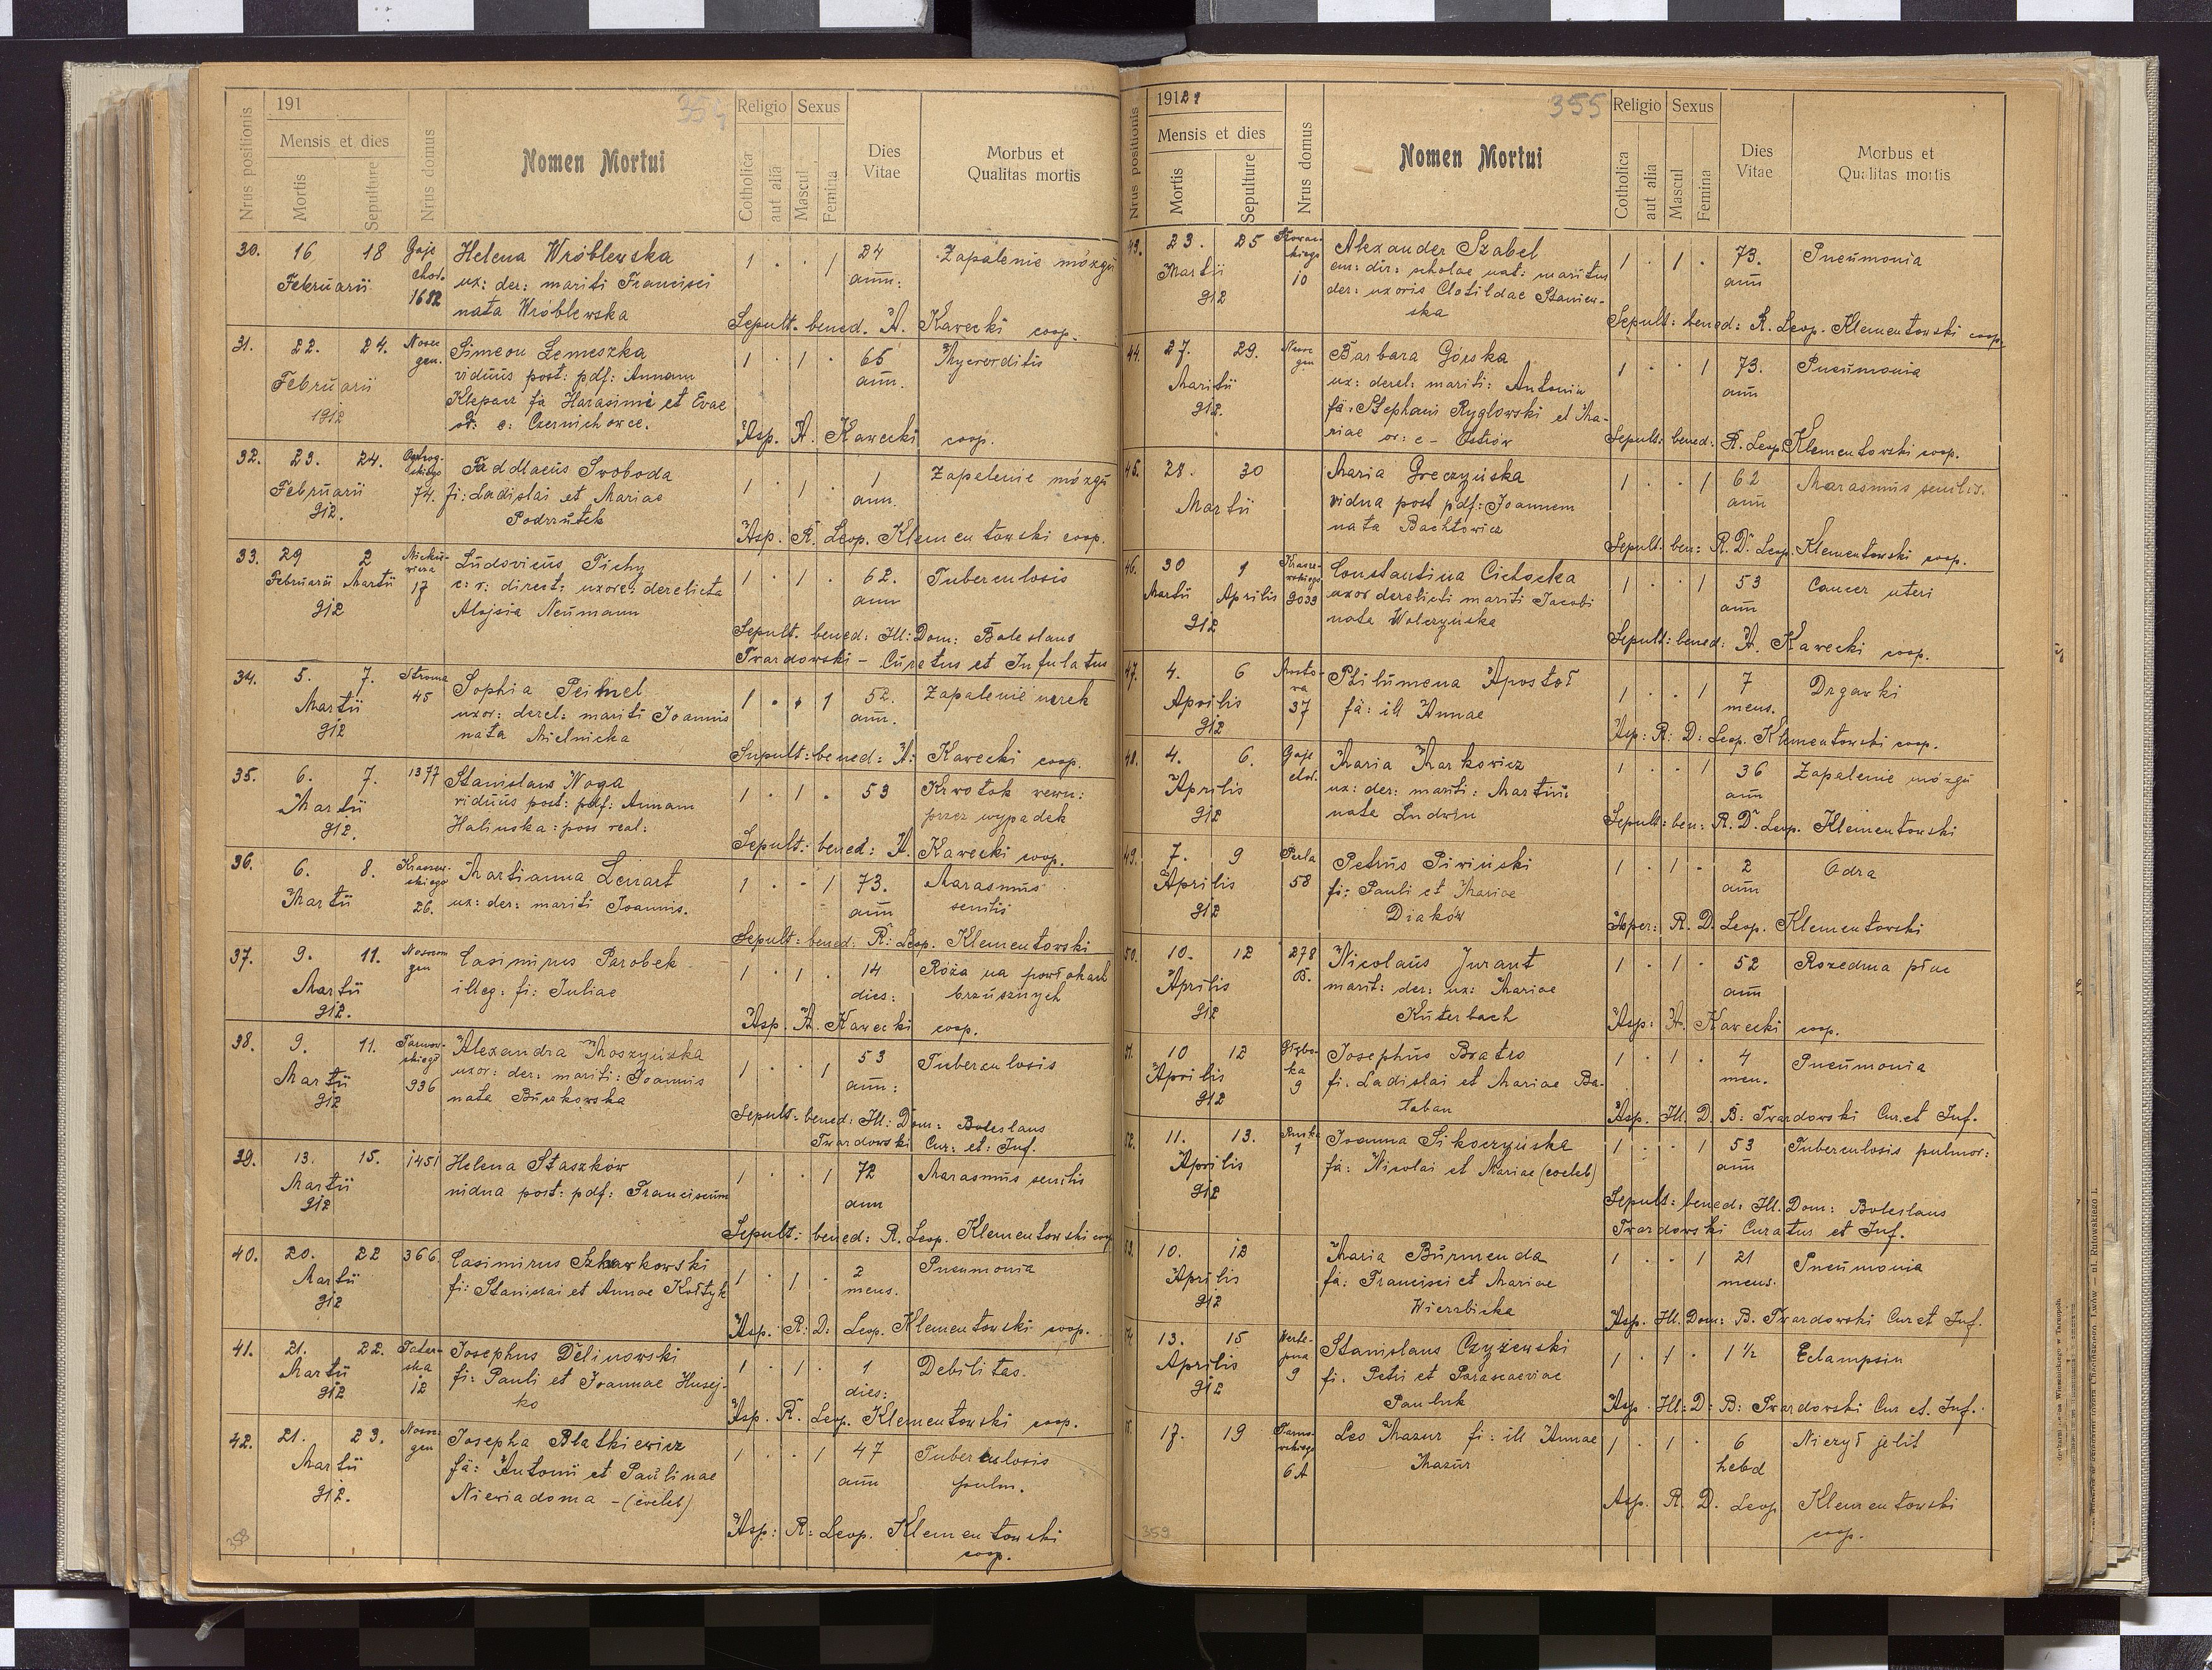 191
354
Nrus positionis
Mensis et dies
Mortis
Sepulture
Nrus domus
Nomen Mortui
Religio
Cotholica
aut alia
Sexus
Mascul
Femina
Dies Vitae
Morbus et
Qualitas mortis
30. 16 18 Gaje Helena Wróblewska 1 . . 1 24 Zapalenie mózgu
Februarii chod. ux: der: mariti Francisci ann:
1682 nata Wróblewska
Sepult. bened. A. Kawecki coop.
31. 22. 24. Nosoc. Simeon Lemeszka 1 . 1 . 65
Februarii gen. viduus post: pdf: Annam ann.
1912 Klepacz fi Harasimi et Evae
or: e: Czernichowce.
Asp. A. Kawecki coop.
32. 23. 24. Ostrog- Taddlaeus Swoboda 1 . 1 . 1 Zapalenie mózgu
Februarii skiego fi: Ladislai et Mariae ann.
912. 74. Podrzutek
Asp. R. Leop. Klementowski coop.
33. 29 2 Mickie- Ludovicus Tichy 1 . 1 . 62. Tuberculosis
Februarii Martii wicza c: r: direct: uxore: derelicta ann
912 17 Alojsia Neumann
Sepult. bened: Ill: Dom: Boleslaus
Twardowski - Curatus et Infulatus
34. 5. 7. Stroma Sophia 1 . . 1 52. Zapalenie nerek
Martii 45 uxor: derel: mariti Joannis ann.
912 nata Mielnicka
Sepult: bened: A: Kawecki coop.
35. 6. 7. 1377 Stanislaus Waga 1 . 1 . 53 Krwotok wewn:
Martii viduus post: pdf: Annam przez wypadek
912. Halinska: poss real:
Sepult: bened: A. Kawecki coop.
36. 6. 8. Kraszew- Martianna Lenart 1 . - 1 73. Marasmus
Martii skiego ux: der: mariti Joannis. ann senilis
26.
Sepult: bened: R: Leop. Klementowski
37. 9. 11. Nosocom Casimirus Parobek 1 . 1 . 14 Róża na powłokach
Martii gen illeg: fi: Juliae dies: brzusznych
912.
Asp. A. Kawecki coop.
38. 9. 11. Tarnow- Alexandra Moszyńska 1 . . 1 53 Tuberculosis
Martii skiego uxor: der: mariti: Joannis ann:
912 936 nata
Sepult: bened: Ill: Dom: Boleslaus
Twardowski Cur: et: Inf.
39. 13. 15. 1451 Helena Staszków 1 . . 1 72 Marasmus senilis
Martii vidua post: pdf: Franciscum ann
912
Sepult: bened: R. Leop. Klementowski coop
40. 20. 22 366 Casimirus 1 . 1 . 2 Pneumonia
Martii fi: Stanislai et Annae Kołtyk mens.
912
Asp. R: D: Leop. Klementowski coop.
41. 21. 22. Tatar- Josephus Delinowski 1 . 1 . 1 Debilitas.
Martii ska fi: Pauli et Joannae Husej- dies:
912 12 ko
Asp. R. Leop. Klementowski coop.
42. 21. 23. Nosoc: Josepha Blatkiewicz 1 . . 1 47 Tuberculosis
Martii gen fa: Antonii et Paulinae ann pulm.
912. Niewiadoma - (coeleb)
Asp: R: Leop. Klementowski
coop.
358
1912
355
Nrus positionis
Mensis et dies
Mortis
Sepulture
Nrus domus
Nomen Mortui
Religio
Cotholica
aut alia
Sexus
Mascul
Femina
Dies Vitae
Morbus et
Qualitas mortis
43. 23. 25 Alexander Szabel 1 . 1 . 73. Pneumonia
Martii em: dir: scholae nat: maritus ann
912 10 der: uxoris Clotildae Staniew-
ska
Sepult: bened: R. Leop. Klementowski coop.
44. 27. 29. Barbara Górska 1 . . 1 73. Pneumonia
Martii gen ux: derel: mariti: Antonii ann
912. fa: Stephani Ryglowski et Ma-
riae or: e - Ostrów
Sepult: bened: R. Leop. Klementowski coop.
45. 28. 30 Maria Greczyńska 1 . . 1 62 Marasmus senilis.
Martii vidua post pdf: Joannem ann
nata Bachtowicz
Sepult: ben: R. D. Leop. Klementowski coop.
46. 30 1 Krasze- Constantina Cichocka 1 . . 1 53 Cancer uteri
Martii Aprilis wskiego uxor derelicti mariti Jacobi ann
912 2039 nata Wolczyńska
Sepult: bened: A. Kawecki coop.
47. 4. 6 Mosto- Philumena Apostoł 1 . . 1 7 Drgawki
Aprilis wa fa: ill Annae mens.
912 37
Asp: R: D: Leop. Klementowski coop.
48. 4. 6. Gaje Maria Markowicz 1 . - 1 36 Zapalenie mózgu
Aprilis chod. ux: der: mariti: Martini ann
912 nata Ludwin
Sepult: ben: R. D. Leop. Klementowski
49. 7. 9 Perla Petrus Piwiński 1 . 1 - 2 Odra
Aprilis 58 fi: Pauli et Mariae ann
912 Diaków
Asper: R. D. Leop. Klementowski
50. 10. 12 278 Nicolaus Jurant 1 . 1 . 52 Rozedma płuc
Aprilis B. marit: der: ux: Mariae ann
912 Kuterbach
Asp: A. Kawecki coop.
51. 10 12 Głębo- Josephus Bratro 1 . 1 . 4 Pneumonia
Aprilis ka fi. Ladislai et Mariae Ba- men.
912 9 taban
Asp. Ill. D. B: Twardowski Cur. et Inf.
52. 11. 13. Ruska Joanna Sikoczyńska 1 . . 1 53 Tuberculosis pulmor:
Aprilis 1 fa: Nicolai et Mariae (coeleb) ann
912
Sepult: bened: Ill. Dom: Boleslaus
Twardowski Curatus et Inf.
53. 10. 12 Maria Burmenda 1 . . 1 21 Pneumonia
Aprilis fa: Francisci et Mariae mens.
912 Wierzbicka
Asp. Ill. Dom: B. Twardowski Cur et Inf.
54. 13. 15 Stanislaus Czyżewski 1 . 1 . 1½ Eclampsia
Aprilis fi. Petri et Parascaeviae
912 9 Pauluk
Asp. Ill: D: B: Twardowski Cur et. Inf.
55. 17. 19 Leo Mazur fi: ill Annae 1 . 1 . 6 Nieżył jelit
6A Mazur hebd
Asp. R. D. Leop Klementowski
coop.
359